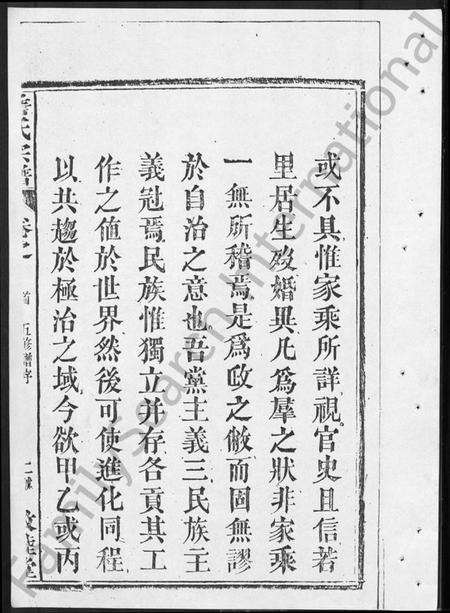 或不具惟家乘所詳視官史且信若
里居生歿婚異凡為羣之狀非家乘
一無所稽焉是為政之敝而固無謬
於自治之意也吾黨主義三民族主
義冠焉民族惟獨立并存各貢其工
作之値於世界然後可使進化同程
以共趨於極治之域今欲甲乙或丙
氏宗譜 卷之 首 五修譜序 二
FamilySearch International